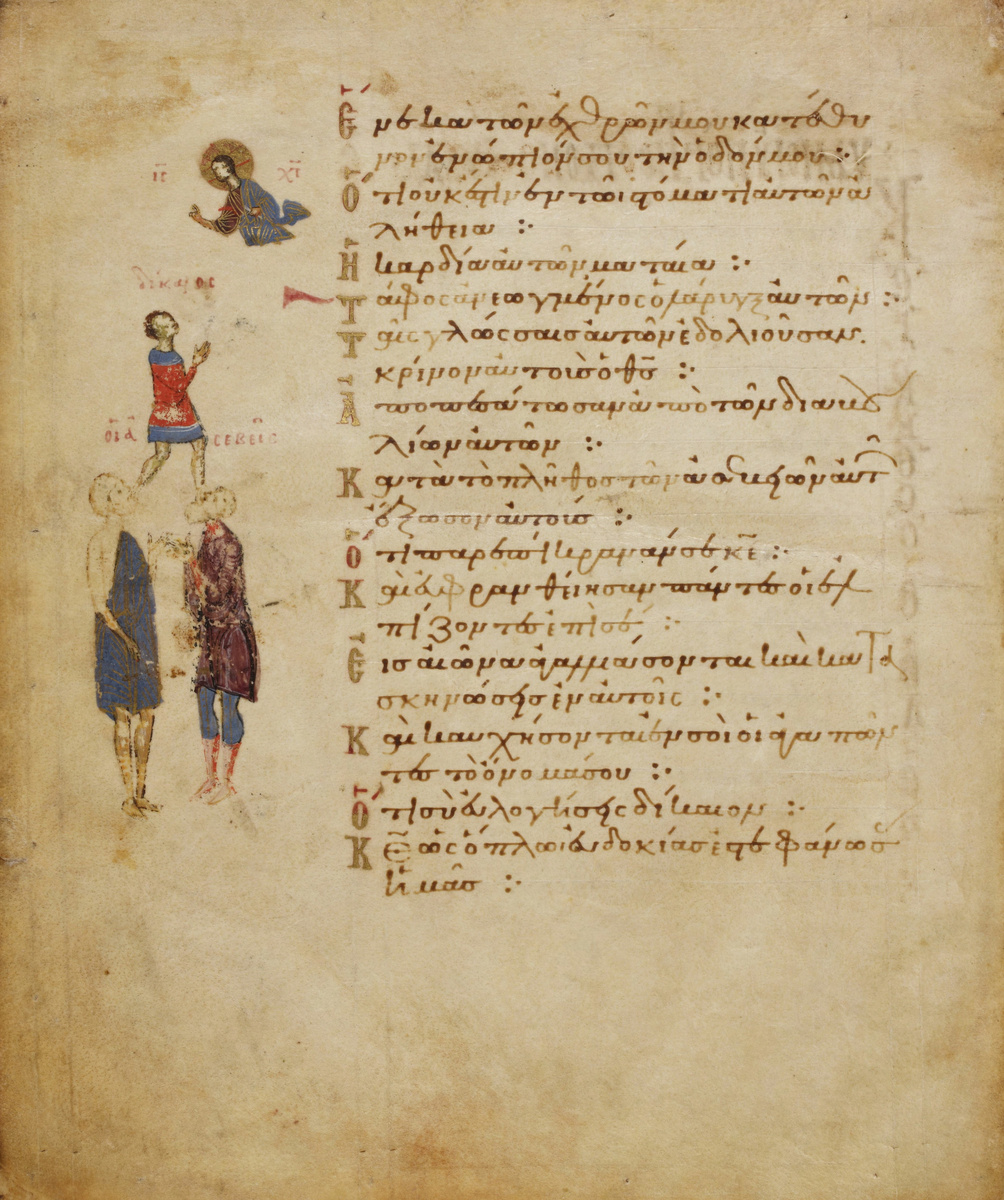 ΙϹ ΧϹ
δίκαιος
οἱ ἀσεβεῖς
Ἕνεκα τῶν ἐχθρῶν μου κατεύθυ
νον ἐνώπιόν σου τὴν ὁδόν μου :·
Ὅτι οὐκ ἔστιν ἐν τῶι στόματι αὐτῶν ἀ
λήθεια :·
Ἡ καρδία αὐτῶν ματαία :·
Τάφος ἀνεωγμένος ὁ λάρυγξ αὐτῶν :·
Ταῖς γλώσσαις αὐτῶν ἐδολιοῦσαν.
κρίνον αὐτοὺς ὁ θς :·
Ἀποπεσάτωσαν ἀπὸ τῶν διαβου
λιῶν αὐτῶν :·
Κατὰ τὸ πλῆθος τῶν ἀσεβειῶν αὐτῶν
ἔξωσον αὐτούς :·
Ὅτι παρεπίκρανάν σε κε :·
Καὶ εὐφρανθείησαν πάντες οἱ ἐλ
πίζοντες ἐπὶ σέ :·
Εἰς αἰῶνα ἀγαλλιάσονται καὶ κατα
σκηνώσεις ἐν αὐτοῖς :·
Καὶ καυχήσονται ἐν σοὶ οἱ ἀγαπῶν
τες τὸ ὄνομά σου :·
Ὅτι σὺ εὐλογήσεις δίκαιον :·
Κε ὡς ὅπλωι εὐδοκίας ἐστεφάνωσας
ἡμᾶς :·